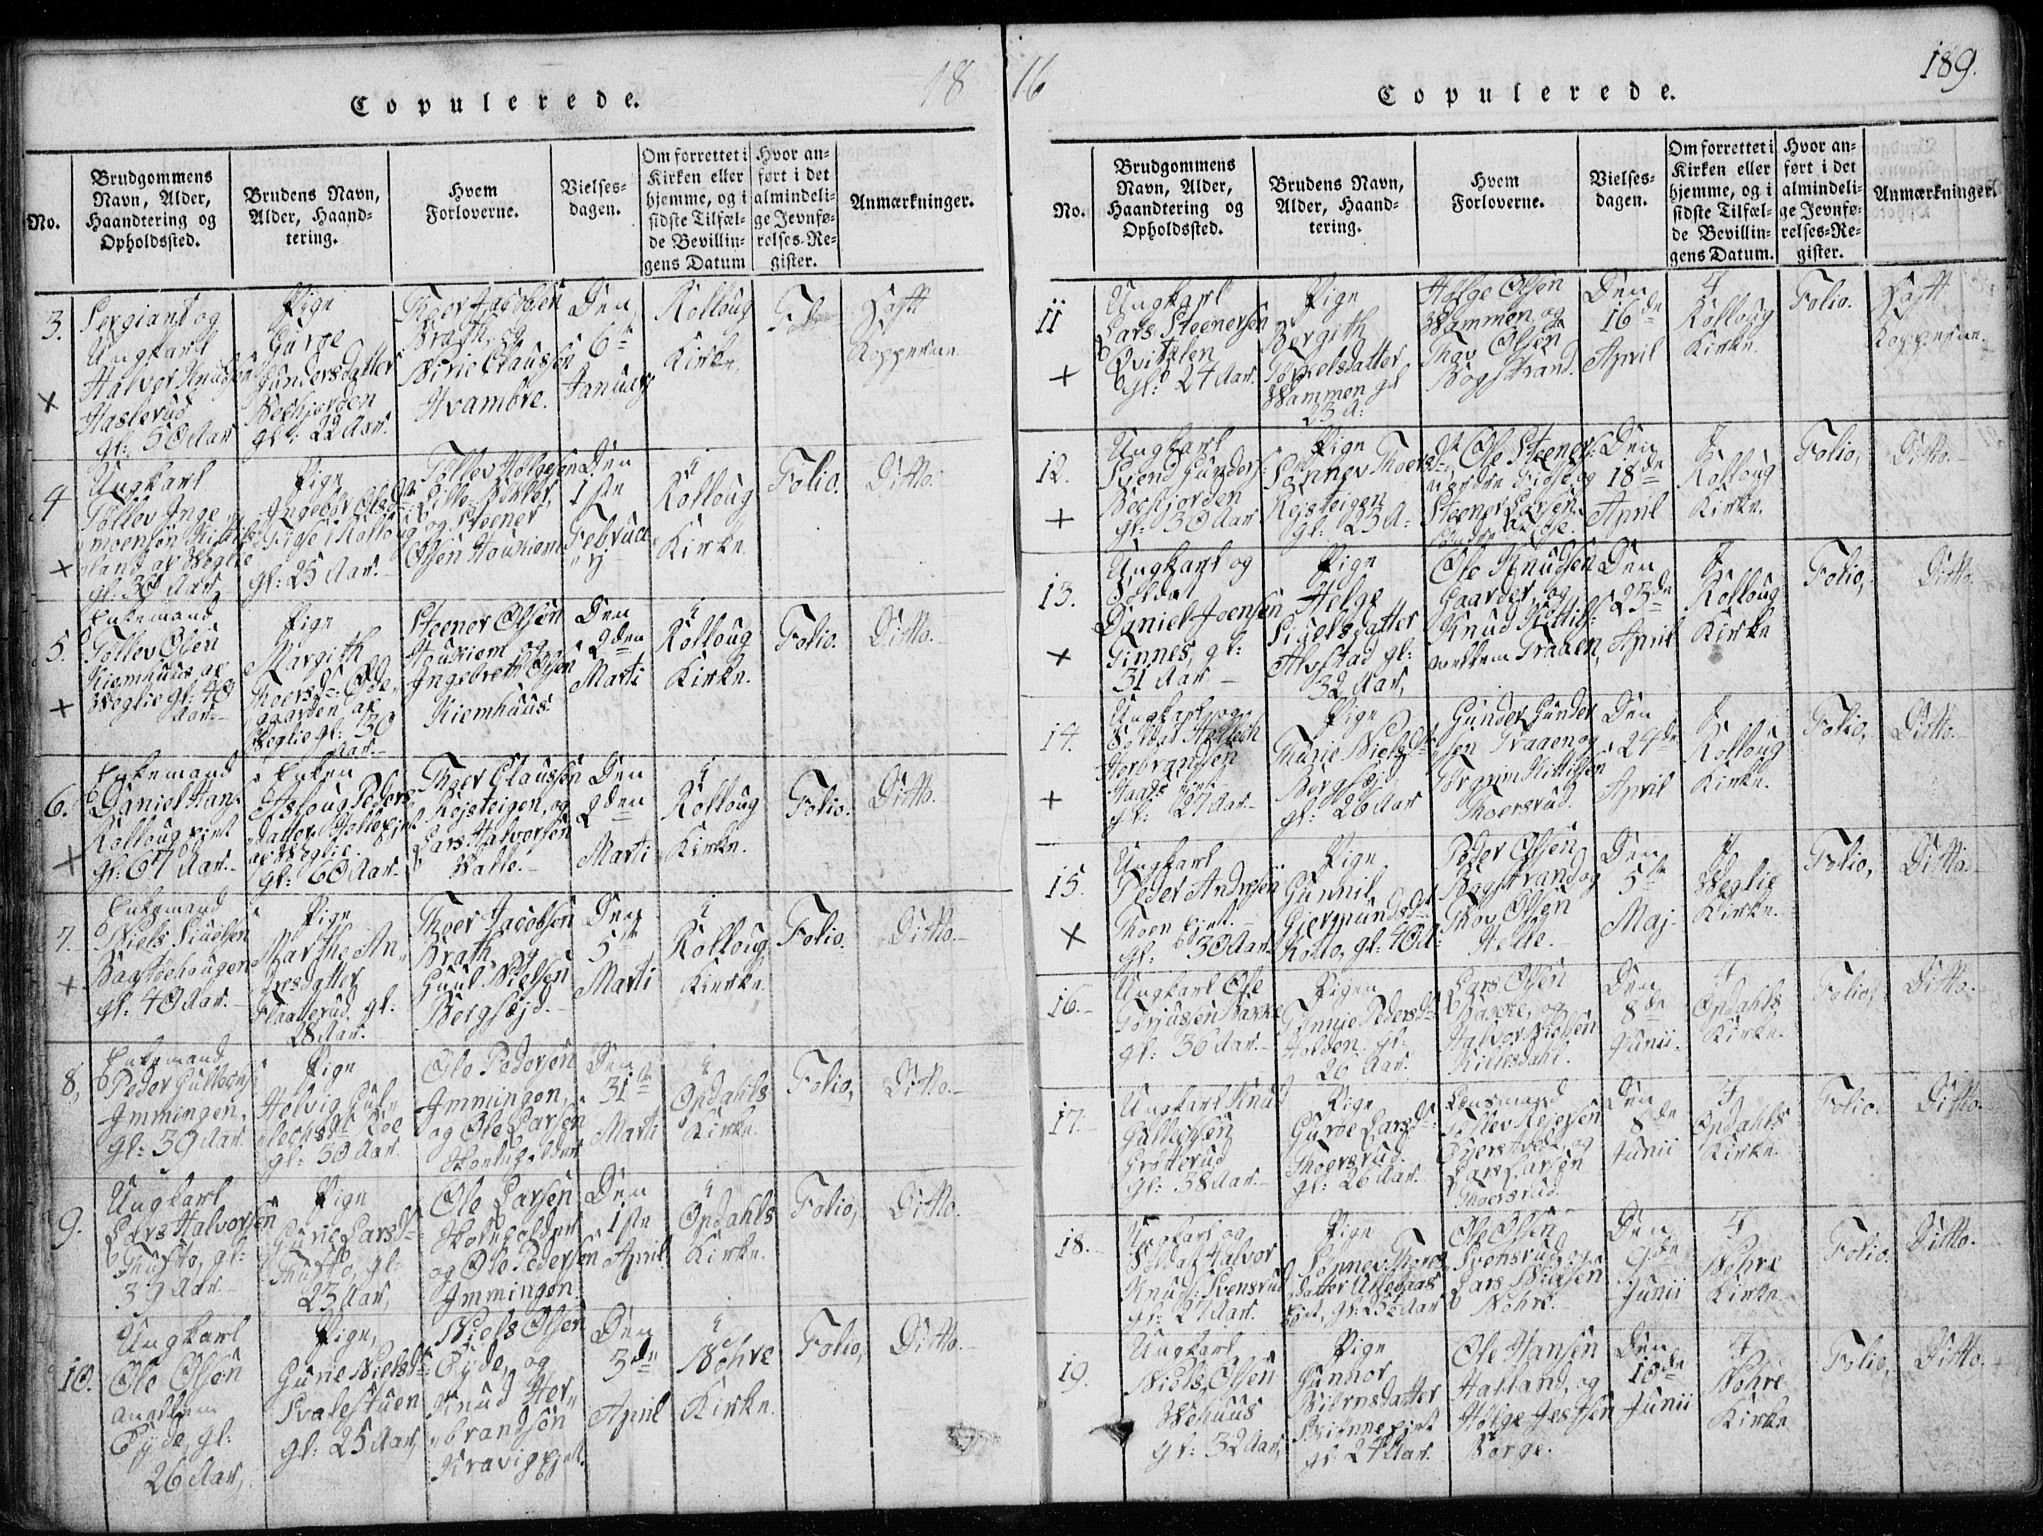 18
Copulerede.
No.
Brudgommens
Navn, Alder,
Haandtering og
Opholdssted.
Brudens Navn,
Alder, Haand-
tering.
Hvem
Forloverne.
Vielses-
dagen.
Om forrettet i
Kirken eller
hjemme, og i
sidste Tilfæl-
de Bevillin-
gens Datum
Hvor an-
ført i det
almindeli-
ge Jevnfø-
relses-Re-
gister.
Anmærkninger.
3.
+
Sergiant og
Ungkarl
Halvor Knudsen
Haslerud
gl: 50 Aar
Pige
Guroe
Gundersdatter
gl: 22 Aar.
Thoer Jacobsen
Brath, og
Clausen
Hvambre.
Den
6te
Januarj
Rolloug
Kirke
Folio
Hafft
Kopperne
4
+
Ungkarl
Tollev Inge
moensøn
land af Veglie
gl: 30 Aar
Pige
Rolloug
gl: 25 Aar.
Tollev Helgesen
og Steener
Olsen Houkiem
Den
1ste
Februar
ij
i
Rolloug
Kirke
Folio.
Ditto.
5.
+
Enkemand
Tollev Olsen
Kiemhuus af
Veglie gl: 40
Aar.
Pige
Margith
Thoersd: Øde
gaarden af
Veglie gl: 30
Aar.
Steener Olsen
Houkiem og
Ingebreth Olsen
Kiemhuus
Den
2den
Marti
i
Rolloug
Kirke.
Folio.
Ditto.
6.
+
Enkemand
Daniel Han
Rolloug eiet
gl: 67 Aar.
Enken
Asloug Peders
datter
af Veglie.
gl: 60 Aar.
Thoer Clausen
Rejsteigen, og
Lars Halvorsen
Valle.
Den
2den
Marti
i
Rolloug
Kirke.
Folio.
Ditto.
7.
+
Enkemand
Niels Siuelsen
Bagstøehougen
gl: 40 Aar.
Pige
Marthe An
dresdatter
Flaatterud gl:
28 Aar.
Thoer Jacobsen
Brath, og
Guul Nielsen
Bergsejd.
Den
5te
Marti
i
Rolloug
Kirke
Folio.
Ditto.
8,
Enkemand
Peder Gullechs:
Immingen,
gl: 30 Aar.
Pige
Helvig Gul
gl: 30 Aar.
Ole Pedersen
Immingen,
og Ole Larsen
Den
31te
Marti
i
Opdahls
Kirke
Folio,
Ditto.
9.
Ungkarl
Lars Halvorsen
Frusto, gl:
39 Aar
Pige
Gurie Larsd:
Frusto, gl:
25 Aar,
Ole Larsen
og Ole Pedersen
Immingen.
Den
1ste
April
i
Opdahls
Kirke.
Folio,
Ditto.
10.
Ungkarl
Ole Olsen
Eyde, gl:
26 Aar,
Pige,
Gurie Nielsd:
Svalestuen
gl: 25 Aar,
Niels Olsen
Eyde, og
Knud Her
brandsen
Kravigeiet.
Den
3de
April
i
Nohre
Kirke.
Folio,
Ditto.
16
189.
Copulerede.
No.
Brudgommens
Navn, Alder,
Haandtering og
Opholdssted.
Brudens Navn,
Alder, Haand-
tering.
Hvem
Forloverne.
Vielses-
dagen.
Om forrettet i
Kirken eller
hjemme, og i
sidste Tilfæl-
de Bevillin-
gens Datum.
Hvor an-
ført i det
almindeli-
ge Jevnfø-
relses-Re-
gister.
Anmærkninger.
11
+
Ungkarl
Lars Steenersen
Qvitalen
gl: 24 Aar.
Pige
Bergith
Torkelsdatter
Wammen gl
25 A:
Helge Olsen
Wammen, og
Thov Olsen
Bogstrand
Den
16de
April
i
Rolloug
Kirke
Folio.
Hafft
Kopperne.
12.
+
Ungkarl
Svend Gunders:
gl: 30 Aar
Pige
Sønnev Thoersd:
Rejsteigen
gl: 25 A:
Ole Steeners:
og
Steener Larsen
Den
18de
April
i
Rolloug
Kirke.
Folio,
Ditto.
13.
+
Ungkarl og
Soldat
Daniel Joensen
Tinnes, gl:
31 Aar
Pige
Helge
Siuelsdatter
Alfstad gl:
32 Aar,
Ole Knudsen
Gaarder, og
Knud Kittils:
mellem Traaen,
Den
23de
April
i
Rolloug
Kirke
Folio,
Ditto.
14.
+
Ungkarl og
Soldat
Herbrandsen
gl: 27 Aar.
Pige
Thurie Nielsd:
Bergsejd
gl: 26 Aar
Gunder Gunder
sen Traaen og
Kittilsen
Thoersrud.
Den
24de
April
i
Rolloug
Kirke.
Folio,
Ditto.
15.
+
Ungkarl
Peder Andersen
Thoen eiet.
gl: 30 Aar.
Pige
Gunnil
Giermundsd:
gl: 40 A:
Peder Olsen
Bogstrand og
Thov Olsen
Helle.
Den
5te
Maj.
i
Veglie
Kirke.
Folio,
Ditto.
16.
Ungkarl Ole
Torjussen Bakke
gl: 36 Aar.
Pigen
Tønnie Pedersd:
Holden, gl:
26 Aar.
Lars Olsen
Bakke, og
Halvor Nielsen
Den
8de
Junii.
i
Opdahls
Kirke.
Folio,
Ditto.
17.
Ungkarl Knud
gl: 38 Aar.
Pige
Guroe Larsd:
Thoersrud
gl: 26 Aar.
Lensmand
Tollev
og
Lars Larsen
Thoersrud
Den
8de
Junii
i
Opdahls
Kirke.
Folio.
Ditto.
18.
Ungkarl og
Soldat Halvor
Knuds: Svensrud
gl: 27 Aar.
Pige
Sønnev Thores
datter
eiet, gl: 25 Aar
Ole Olsen
Svensrud og
Lars Nielsen
Nohre.
Den
9de
Junii
i
Nohre
Kirke.
Folio.
Ditto.
19.
Ungkarl
Niels Olsen
Wehuus
gl: 32 Aar,
Pige
Gunnor
Biørnsdatter
gl: 24 Aar.
Ole Hansen
Halland, og
Helge
Berge.
Den
10de
Junii
i
Nohre
Kirke
Folio,
Ditto.